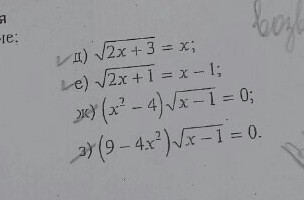 ия
ие:
возв
✓д) √(2x + 3) = x;
✓е) √(2x + 1) = x − 1;
ж) (x² − 4)√(x − 1) = 0;
з) (9 − 4x²)√(x − 1) = 0.